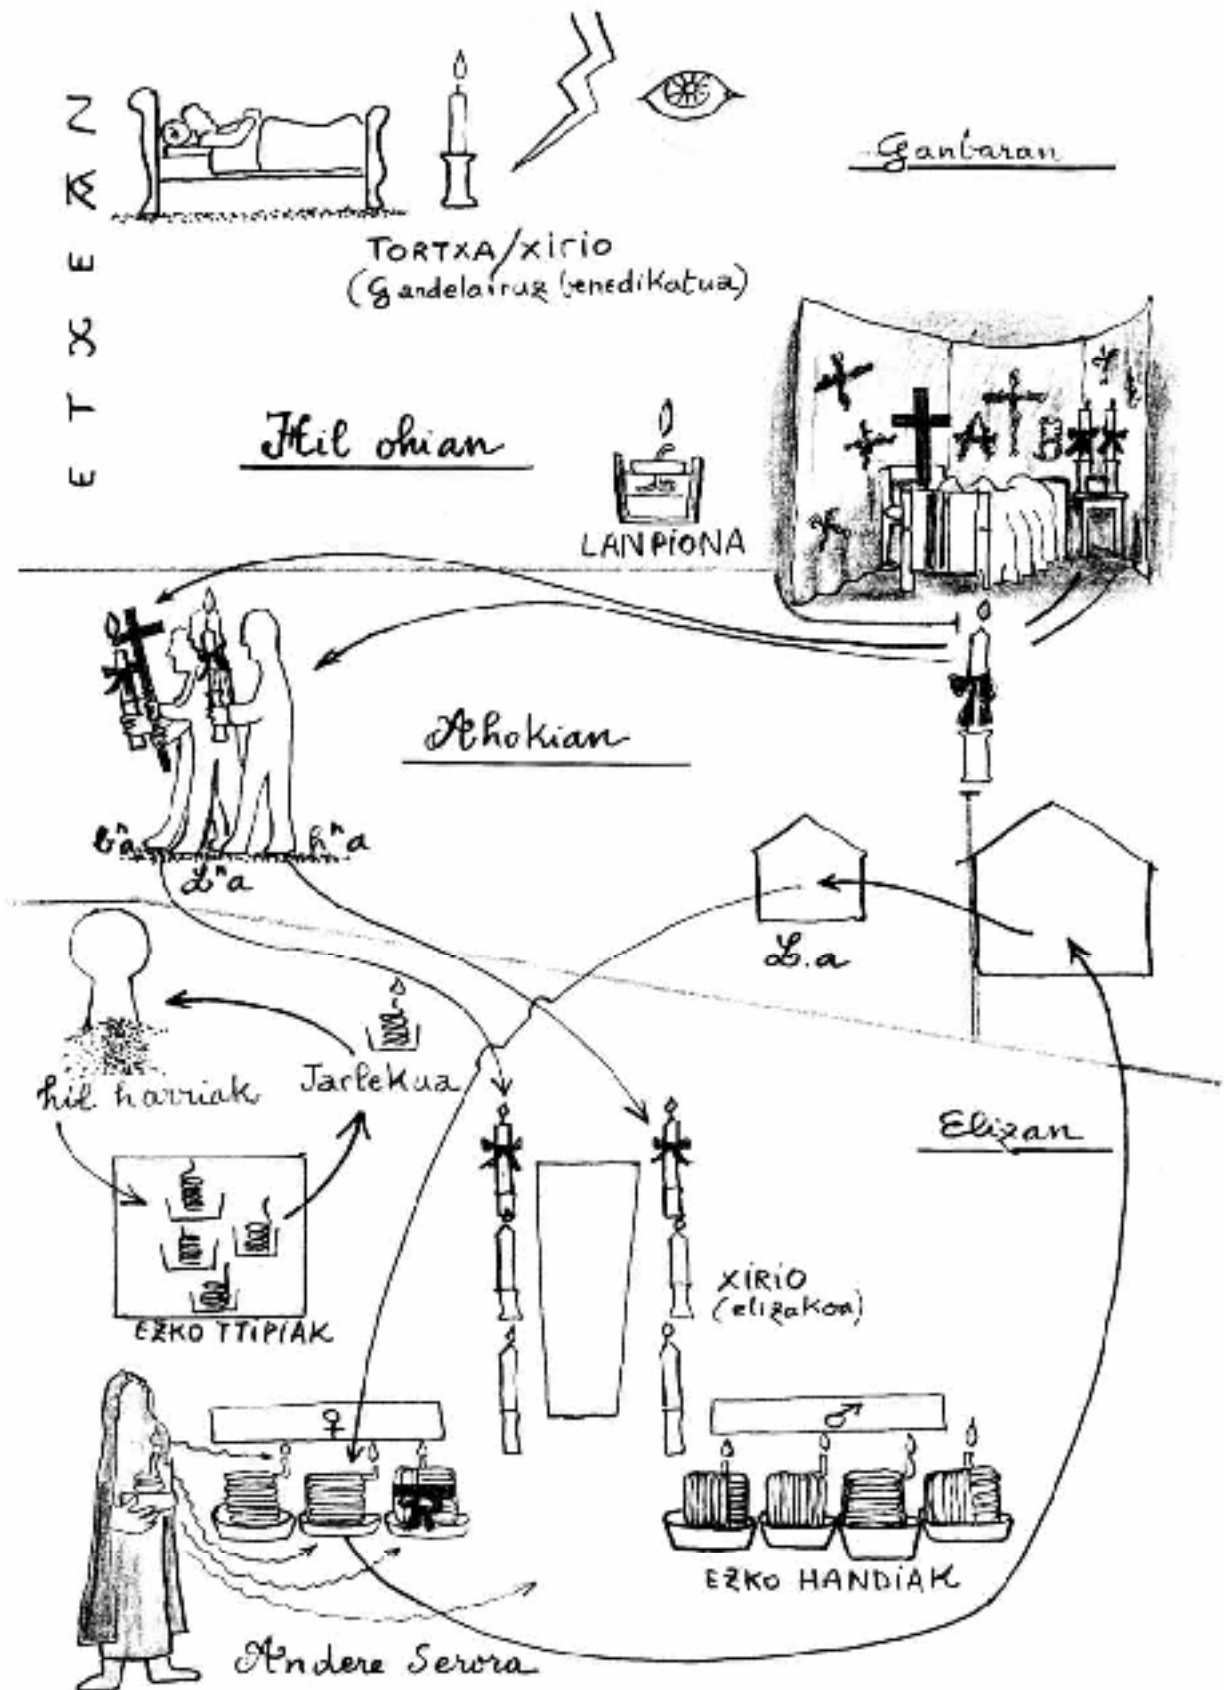 ETXEKAN
Ganbaran
TORTXA/XIRIO
(Gandelairuz benedikatua)
Hil ohian
LANPIONA
Ahokian
bⁿa
Lⁿa
hⁿa
L.a
hil harriak
Jarlekua
Elizan
XIRIO
(elizakoa)
EZKO TTIPIAK
♀
♂
EZKO HANDIAK
Andere Serora